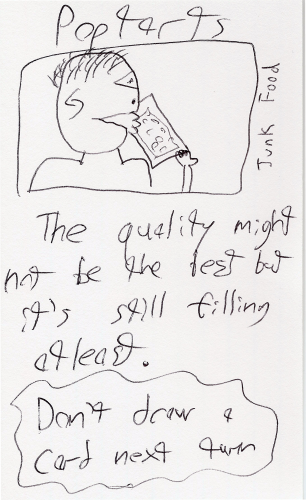 Poptarts
Junk Food
The quality might
not be the best but
it's still filling
atleast.
Don't draw a
card next turn